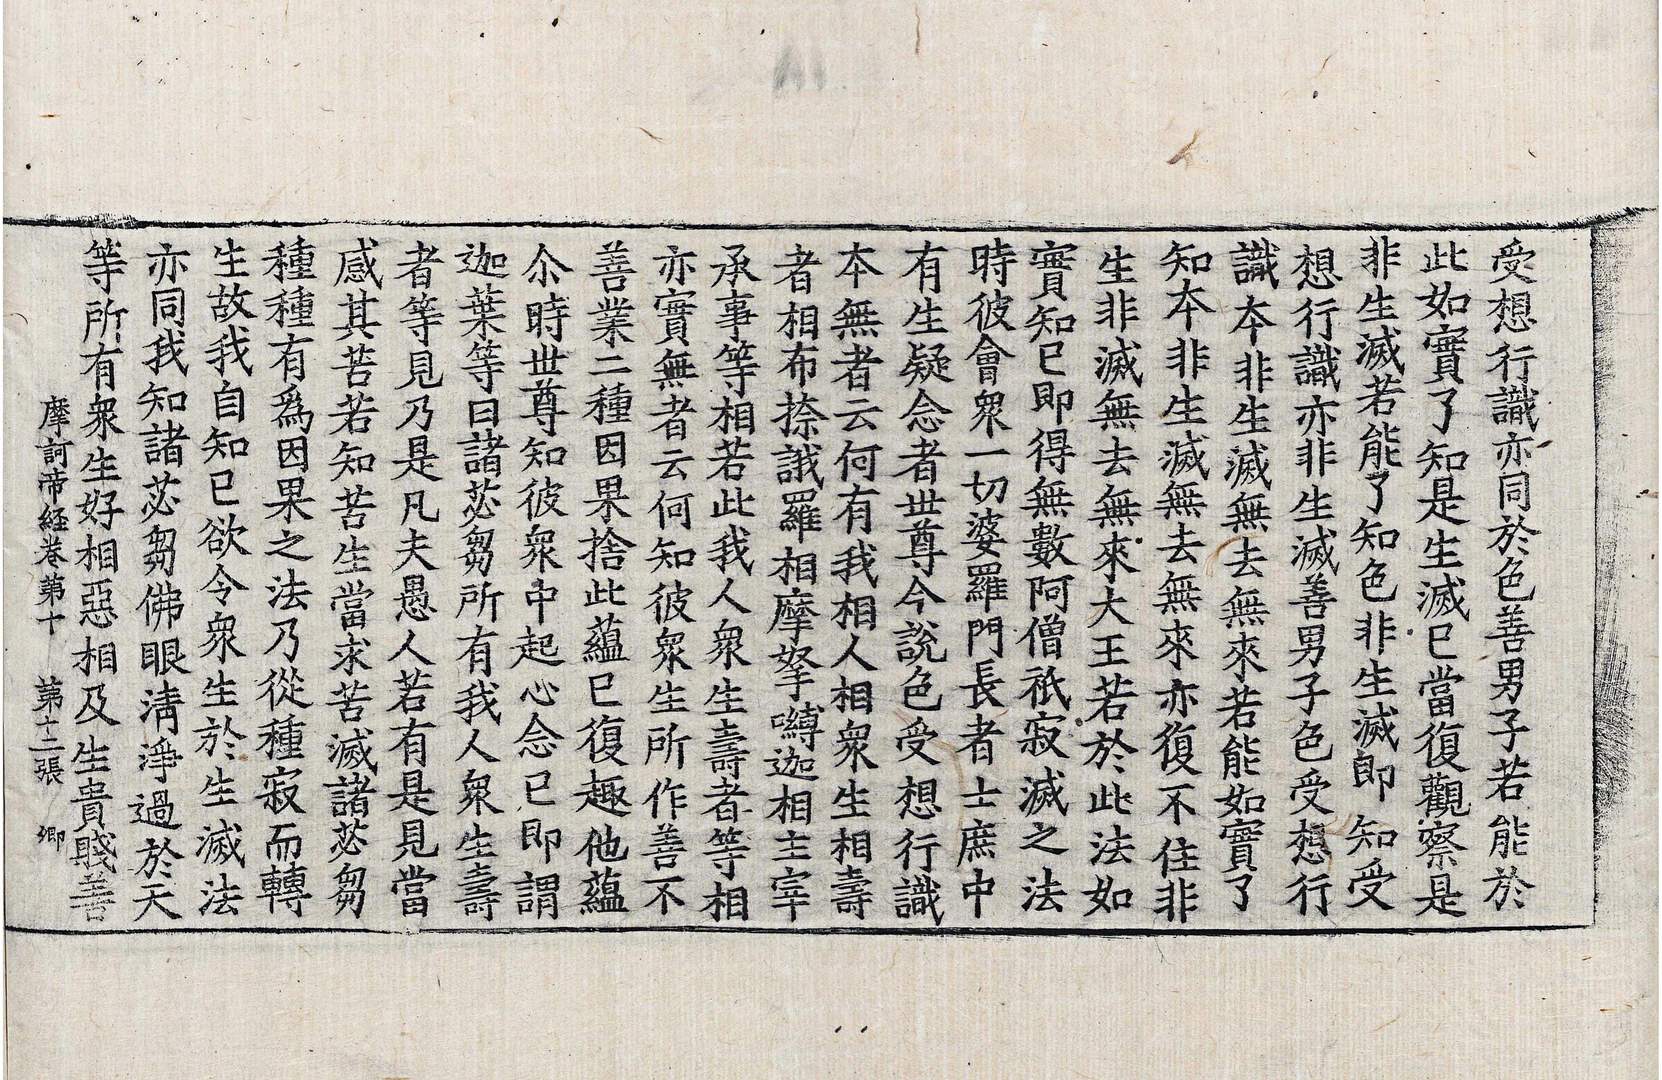 受想行識亦同於色善男子若能於
此如實了知是生滅已當復觀察是
非生滅若能了知色非生滅即知受
想行識亦非生滅善男子色受想行
識本非生滅無去無來若能如實了
知本非生滅無去無來亦復不住非
生非滅無去無來大王若於此法如
實知已即得無數阿僧祇寂滅之法
時彼會衆一切婆羅門長者士庶中
有生疑念者世尊今說色受想行識
本無者云何有我相人相衆生相壽
者相布捺誐羅相摩拏嚩迦相主宰
承事等相若此我人衆生壽者等相
亦實無者云何知彼衆生所作善不
善業二種因果捨此蘊已復趣他蘊
尒時世尊知彼衆中起心念已即謂
迦葉等曰諸苾芻所有我人衆生壽
者等見乃是凡夫愚人若有是見當
感其苦若知苦生當求苦滅諸苾芻
種種有爲因果之法乃從種寂而轉
生故我自知已欲令衆生於生滅法
亦同我知諸苾芻佛眼淸淨過於天
等所有衆生好相惡相及生貴賤善
摩訶帝経卷第十　第十二張　卿